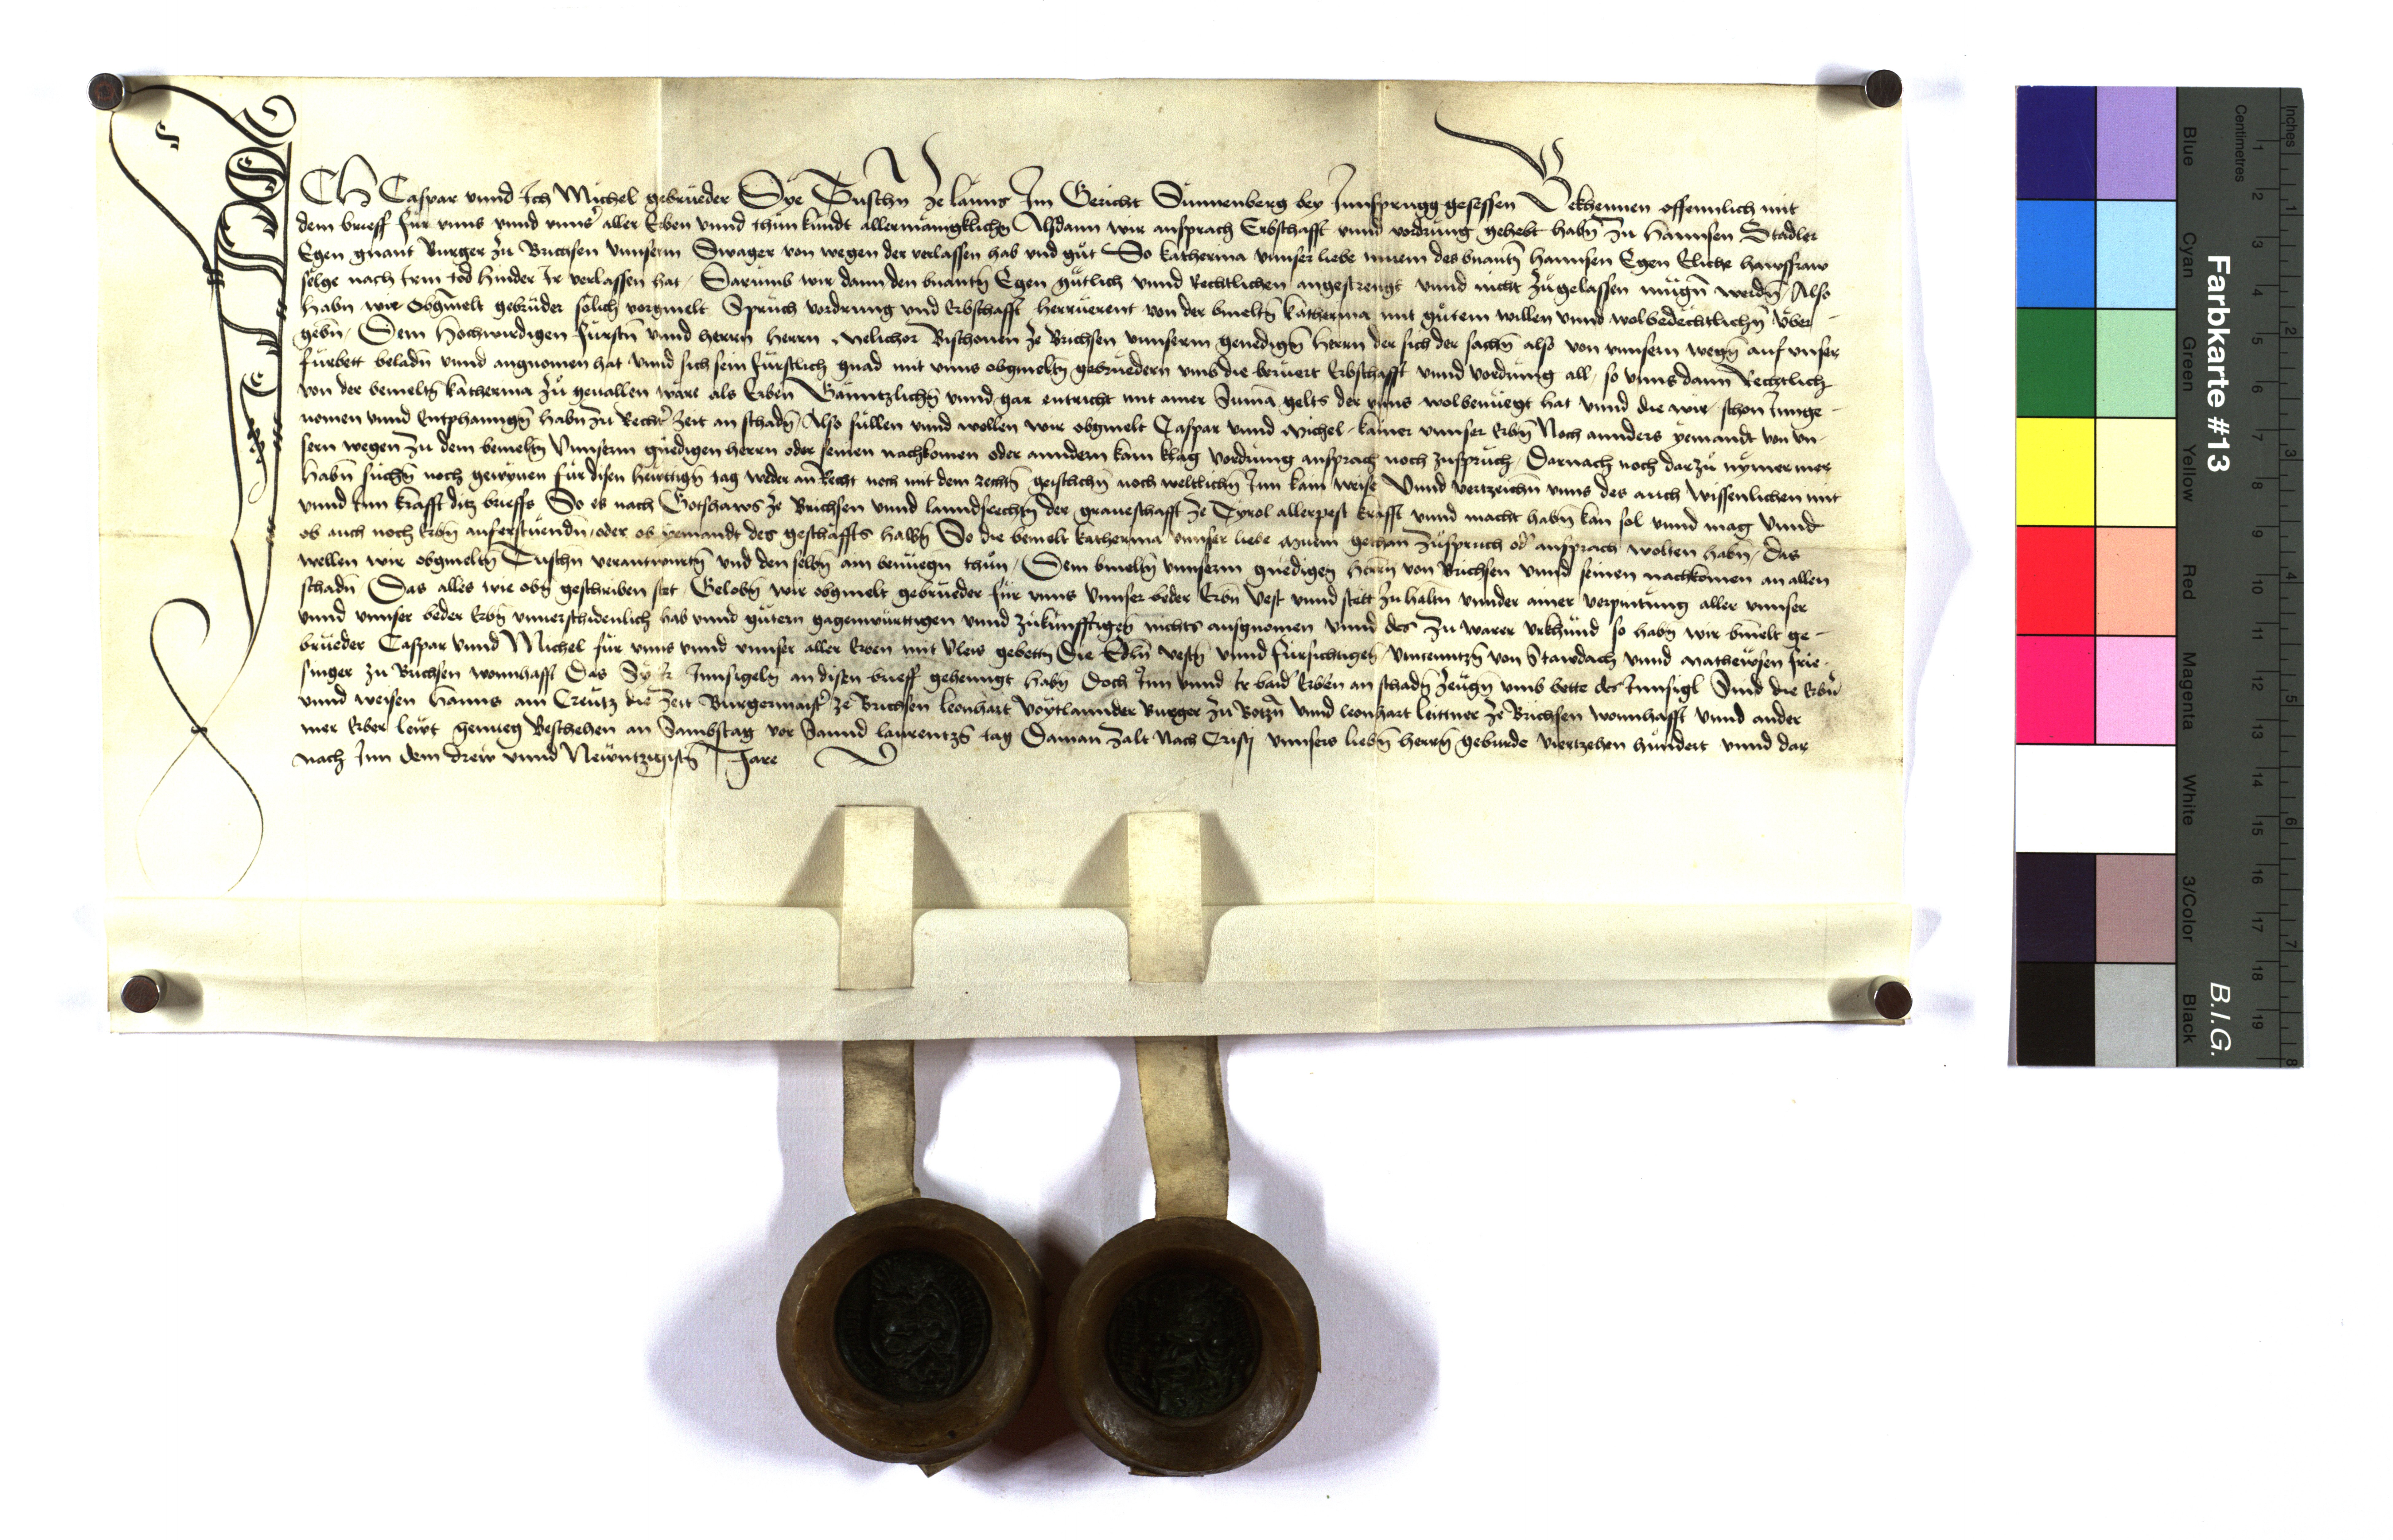 ICH Caspar vnnd Ich Michel gebrueder Dye Tuschn ze lanns Im Gericht Sunnenberg bey Innsprugg gesessen Bekhennen offennlich mit
dem brieff für vnns vnnd vnns' aller Erben vnnd thun kundt allermänigklichn Alsdann wir ansprach Erbschafft vnnd vordrung gehebt habn Zu Hannsen Stadler
Egen gnant Burger zu Brichsen vnnserm Swager von wegen der verlassen hab vnd gut So katherina vnnser liebe muem des bnantn hannsen Egen Eliche hawsfraw
sélge nach Irem tod hinder Ir verlassen hat / Darumb wir dann den bnantn Egen gütlich vnnd Rechtlichen angestrengt vnnd nicht zugelassen mugn werdn / Also
habn wir Obgmelt gebrüder sölich vorgmelt Spruch vordrung vnd Erbschafft herrüerent von der bmeltn katherina mit gutem willen vnnd wolbedechtlichn Vber-
gebn / Dem Hochwirdigen fürstn vnnd herrn herrn Melichor Bischouen ze Brichsen vnnserm genedign herrn der sich der sachn also von vnnsern wegn auf vnser
fürbett beladn vnnd angnomen hat vnnd sich sein fürstlich gnad mit vnns obgmeltn gebruedern vmb die berüert Erbschafft vnnd vordrung all / so vnns dann Rechtlich
von der bemeltn katherina zu geuallen wäre als Erben Gänntzlichn vnnd gar entricht mit ainer Suma gelts der vnns wolbenüegt hat vnnd die wir schon Innge-
nomen vnnd Entphanngn habn zu Recht' zeit an schadn / Also süllen vnnd wollen wir obgmelt Caspar vnnd Michel kainer vnnser Erbn Noch annders yemandt von vn-
sern wegen zu dem bemeltn Vnnserm gnedigen herrn oder seinen nachkomen oder anndern kain klag vordrung ansprach noch zuspruch / Darnach noch darzu nymer mer
habn suchn noch gewynen für disen hewtign tag weder an Recht noch mit dem rechtn geistlichn noch weltlichn Inn kain weise Vnnd vertzeichn vnns des auch Wissenlichen mit
vnnd Inn krafft ditz brieffs So es nach Gotshaws ze Brichsen vnnd lanndsrechtn der graueschafft ze Tyrol allerpest krafft vnnd macht habn kan sol vnnd mag Vnnd
ob auch noch Erbn auferstuendn / oder ob yemandt des geschäffts halbn So die bemelt katherina vnnser liebe Muem gethan Zuspruch od' ansprach wolten habn / das
wellen wir obgmeltn Tuschn verantwurtn vnd den selbn ain benuegn thun / Dem bmeltn vnnserm gnedigen herrn von Brichsen vnnd seinen nachkomen an allen
schadn Das alles wie obn geschriben stet / Gelobn wir obgmelt gebrueder für vnns Vnnser beder Erbn Vest vnnd stett zu haltn vnnder ainer verpintung aller vnnser
vnnd vnnser beder Erbn vnnerschidenlich hab vnnd gutern gagenwürttigen vnnd zukünfftigen nichts ausgnomen vnnd des Zu warer vrkhund so habn wir bmelt ge-
brueder Caspar vnnd Michel für vnns vnnd vnnser aller Erben mit vleis gebettn Die Edln vestn vnnd fürsichtigen Vincenntzn von Stawdach vnnd Mathewsen frie-
singer zu Brichsen wonnhafft Das Sy Ir Innsigeln an disen brieff gehenngt habn Doch Inn vnnd Ir baid' Erben an schadn Zeugn vmb bette des Innsigl Sind die Erbn
vnnd weisen hanns am Creutz die Zeit Burgermaist' ze Brichsen leonhart Voytlannder Burger zu Botzn vnnd leonhart leittner ze Brichsen wonnhafft vnnd ander
mer Erber lewt genueg Beschehen an Sambstag vor Sannd laurentzn tag Da man Zalt Nach Cristj vnnsers liebn herrn geburde viertzehen hundert vnnd dar
nach Inn dem drew vnnd Newntzigistn Jare
Farbkarte #13
B.I.G.
Blue Cyan Green Yellow Red Magenta White 3/Color Black
Centimetres
1 2 3 4 5 6 7 8 9 10 11 12 13 14 15 16 17 18 19
Inches
1 2 3 4 5 6 7 8